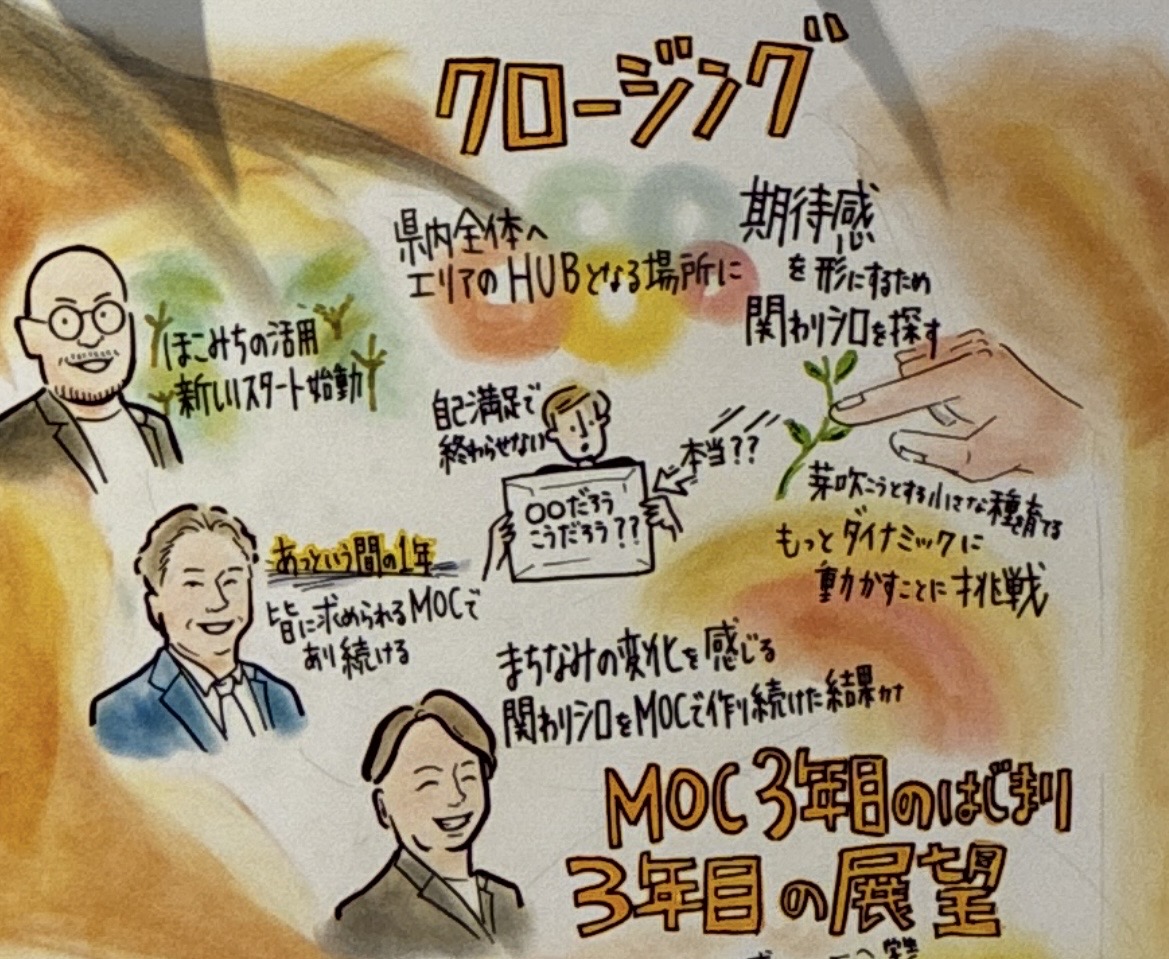 クロージング
県内全体へ
エリアのHUBとなる場所に
期待感
を形にするため
関わりシロを探す
ほこみちの活用
新しいスタート始動
自己満足で
終わらせない
本当??
○○だろう
こうだろう??
芽吹こうとする小さな種を育てる
もっとダイナミックに
動かすことに挑戦
あっという間の1年
皆に求められるMOCで
あり続ける
まちなみの変化を感じる
関わりシロをMOCで作り続けた結果が
MOC3年目のはじまり
3年目の展望